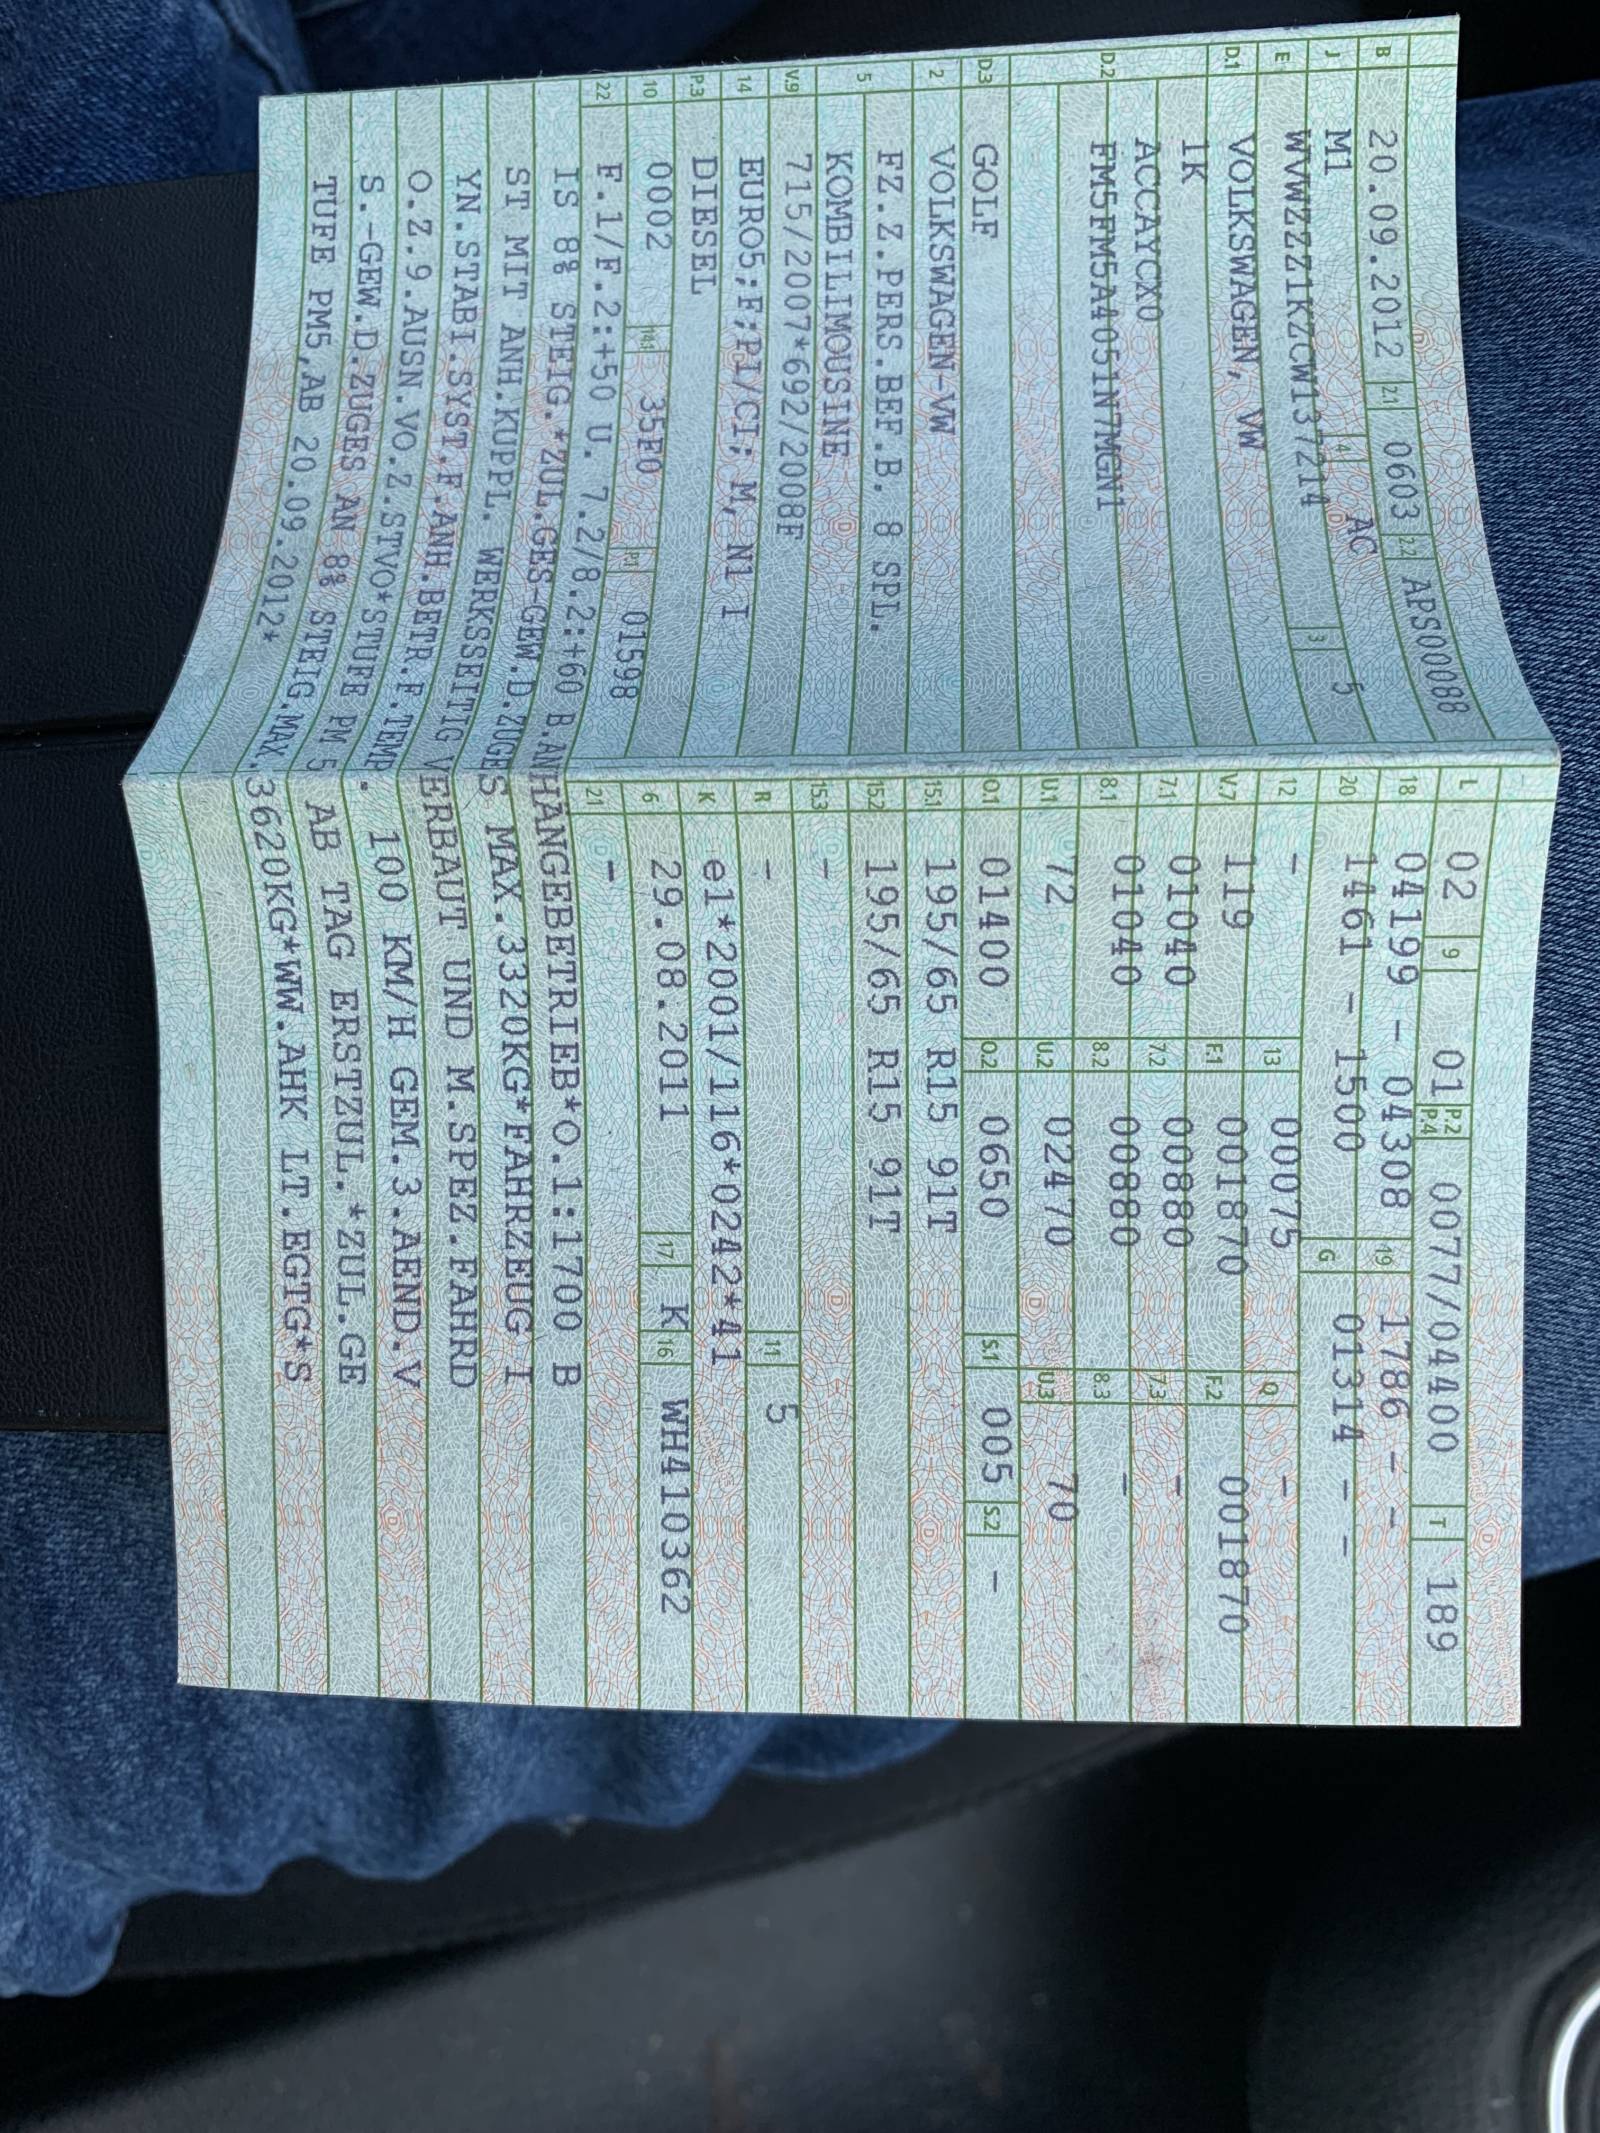 B 20.09.2012 2.1 0603 2.2 APS00088
J M1 4 AC
E WVWZZZ1KZCW137214 3 5
D.1 VOLKSWAGEN, VW
1K
D.2 ACCAYCX0
FM5FM5A4051N7MGN1
D.3 GOLF
2 VOLKSWAGEN-VW
5 FZ.Z.PERS.BEF.B. 8 SPL.
KOMBILIMOUSINE
V.9 715/2007*692/2008F
14 EURO5;F;PI/CI; M, N1 I
P.3 DIESEL
10 0002 14.1 35F0 P.1 01598
L 02 9 01 P.2 P.4 0077/04400 T 189
18 04199 - 04308 19 1786 - -
20 1461 - 1500 G 01314 - -
12 - 13 00075 Q -
V.7 119 F.1 001870 F.2 001870
7.1 01040 7.2 00880 7.3 -
8.1 01040 8.2 00880 8.3 -
U.1 72 U.2 02470 U.3 70
O.1 01400 O.2 0650 S.1 005 S.2 -
15.1 195/65 R15 91T
15.2 195/65 R15 91T
15.3 -
R - 11 5
K e1*2001/116*0242*41
6 29.08.2011 17 K 16 WH410362
21 -
22 F.1/F.2:+50 U. 7.2/8.2:+60 B.ANHÄNGEBETRIEB*O.1:1700 B
IS 8% STEIG.*ZUL.GES-GEW.D.ZUGES MAX.3320KG*FAHRZEUG I
ST MIT ANH.KUPPL. WERKSSEITIG VERBAUT UND M.SPEZ.FAHRD
YN.STABI.SYST.F.ANH.BETR.F.TEMP. 100 KM/H GEM.3.AEND.V
O.Z.9.AUSN.VO.Z.STVO*STUFE PM 5 AB TAG ERSTZUL.*ZUL.GE
S.-GEW.D.ZUGES AN 8% STEIG.MAX.3620KG*WW.AHK LT.EGTG*S
TUFE PM5,AB 20.09.2012*